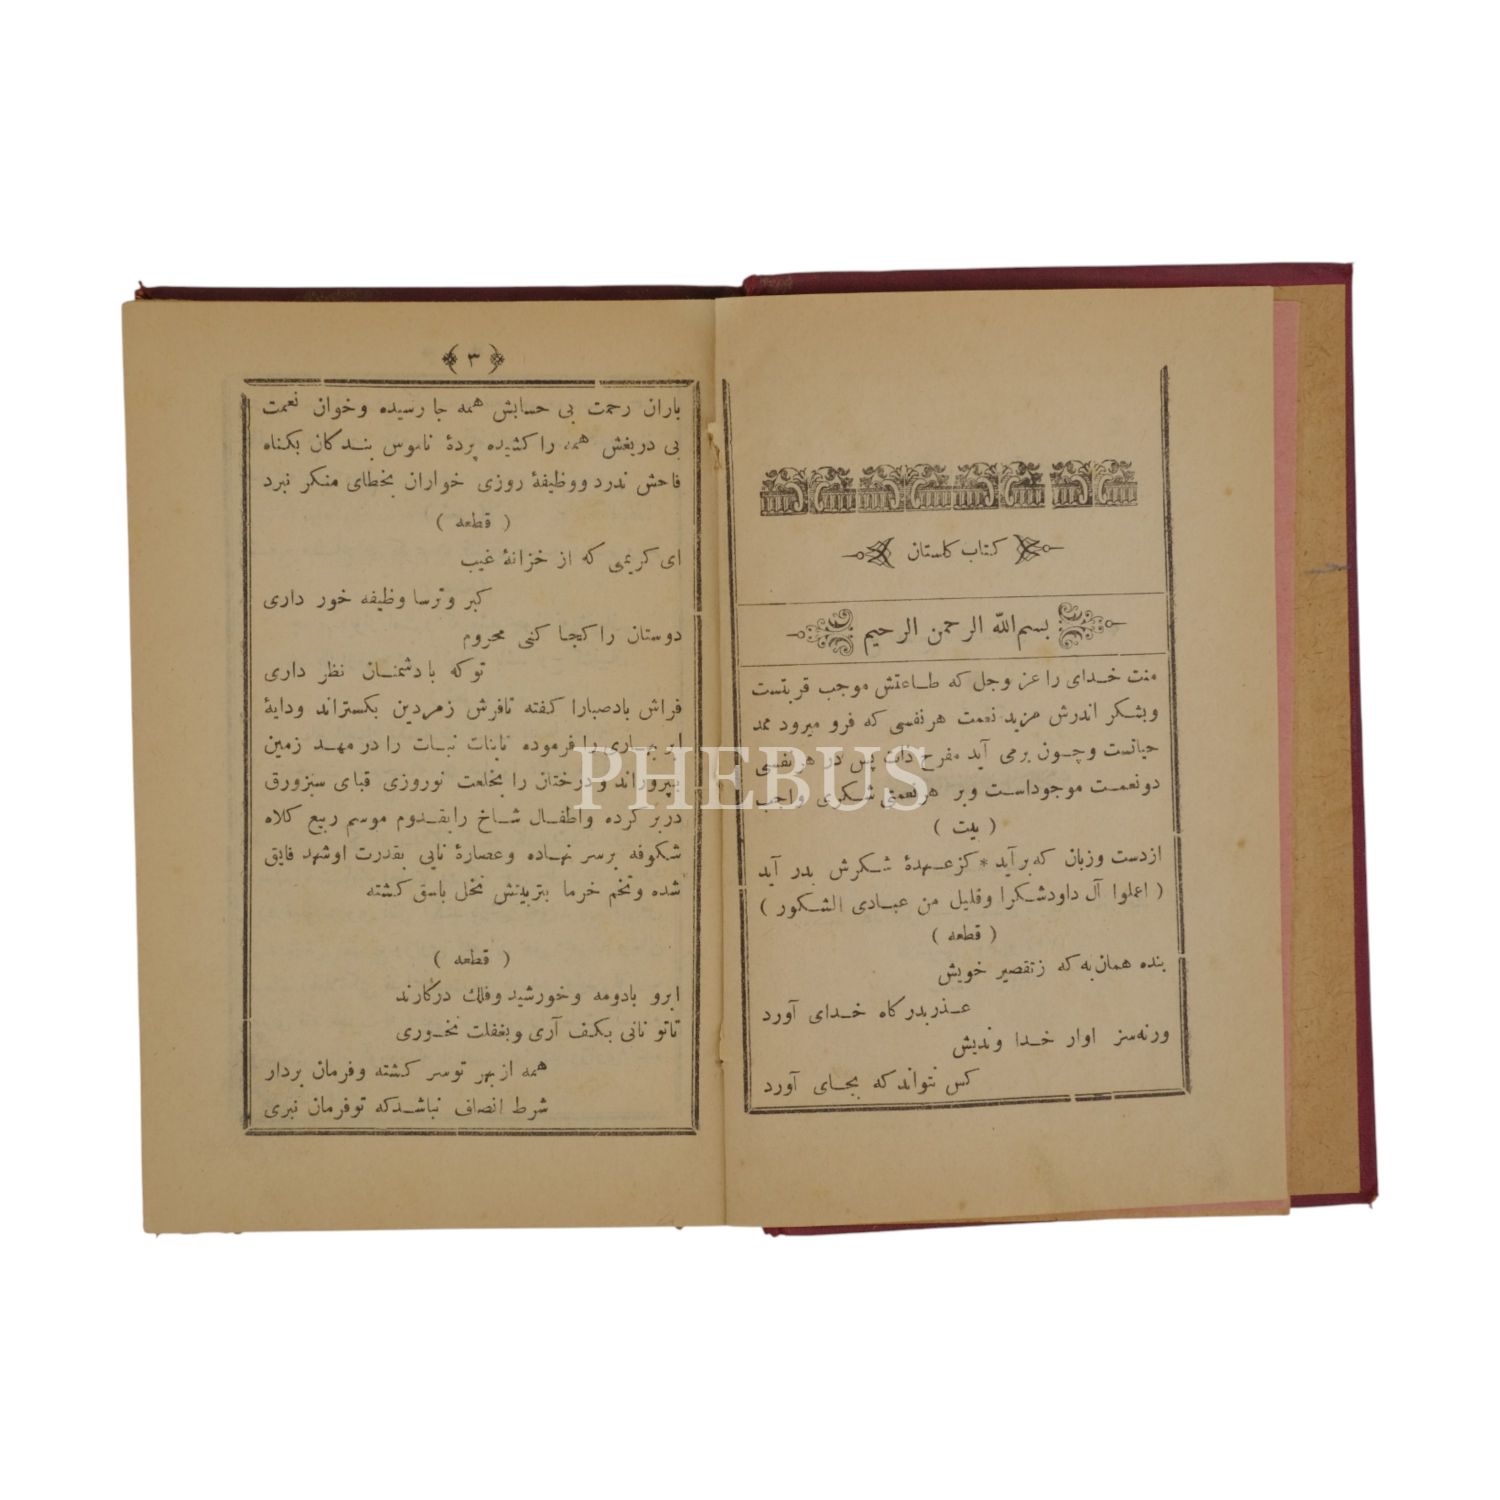 كتاب كلستان
بسم الله الرحمن الرحيم
منت خدای را عز وجل كه طاعتش موجب قربتست
وبشكر اندرش مزيد نعمت هرنفسی كه فرو ميرود ممد
حياتست وچون برمی آيد مفرح ذات پس در هرنفسی
دونعمت موجوداست وبر هرنعمتی شكری واجب
( بيت )
ازدست وزبان كه برآيد * كز عهدهٔ شكرش بدر آيد
( اعملوا آل داودشكرا وقليل من عبادی الشكور )
( قطعه )
بنده همان به كه زتقصير خويش
عذر بدركاه خدای آورد
ورنه سز اوار خدا ونديش
كس نتواند كه بجای آورد
٣
باران رحمت بی حسابش همه جا رسيده وخوان نعمت
بی دريغش همه را كشيده پردهٔ ناموس بندكان بكناه
فاحش ندرد ووظيفهٔ روزی خواران بخطای منكر نبرد
( قطعه )
ای كريمی كه از خزانهٔ غيب
كبر وترسا وظيفه خور داری
دوستان را كجا كنی محروم
توكه بادشمنان نظر داری
فراش بادصبارا كفته تافرش زمردين بكستراند ودايهٔ
ابر بهاری را فرموده تابنات نبات را در مهد زمين
بپروراند ودرختان را بخلعت نوروزی قبای سبزورق
دربر كرده واطفال شاخ رابقدوم موسم ربيع كلاه
شكوفه برسر نهاده وعصارهٔ نايی بقدرت اوشهد فايق
شده وتخم خرما بتربيتش نخل باسق كشته
( قطعه )
ابرو بادومه وخورشيد وفلك دركارند
تاتو نانی بكف آری وبغفلت نخوری
همه ازبهر توسر كشته وفرمان بردار
شرط انصاف نباشدكه توفرمان نبری
PHEBUS